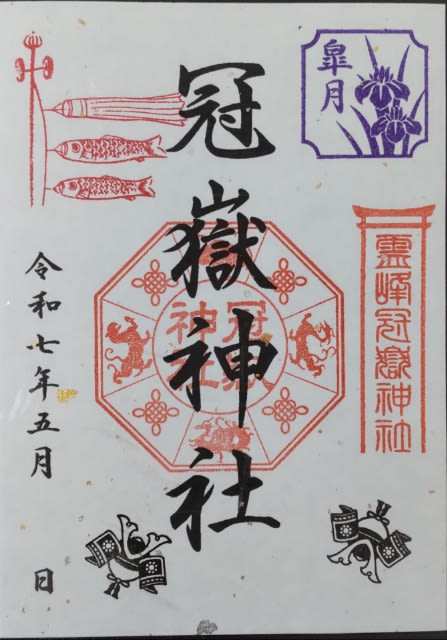 皐月
霊峰冠嶽神社
冠嶽神社
冠嶽
神社
令和七年五月 日